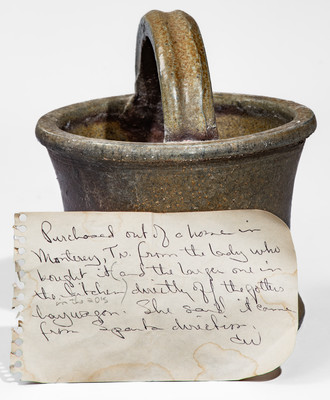 Purchased out of a home in
Monterey, Tn. from the lady who
bought it (and the larger one in
the kitchen) directly off the potters
in the 20's
wagon. She said it came
from Sparta direction.